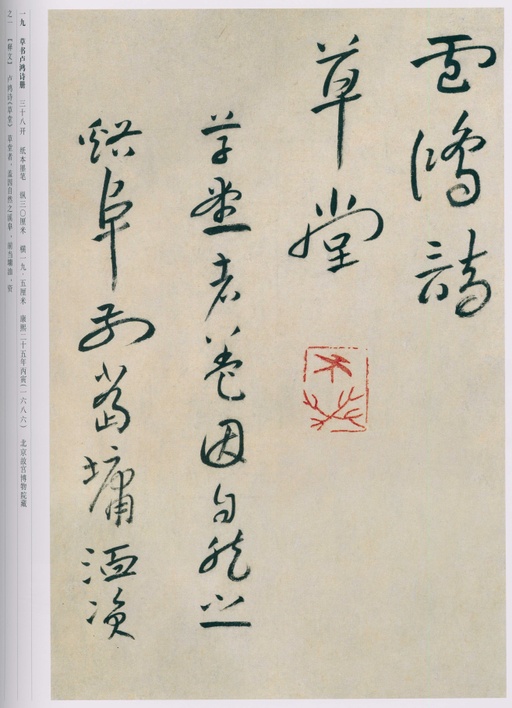 盧鴻詩
草堂
草堂者蓋因自然之
谿阜前當墉洫資
一九 草书卢鸿诗册 三十八开 纸本墨笔 纵三〇厘米 横一九·五厘米 康熙二十五年丙寅(一六八六) 北京故宫博物院藏
之一 【释文】 卢鸿诗(草堂) 草堂者,盖因自然之溪阜,前当墉洫,资